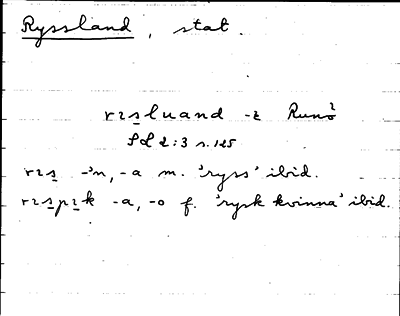 Ryssland, stat.
rɪsluand -ɛ Runö
SL 2:3 s. 125
rɪs -'n, -a m. 'ryss' ibid.
rɪspɪk -a, -o f. 'rysk kvinna' ibid.